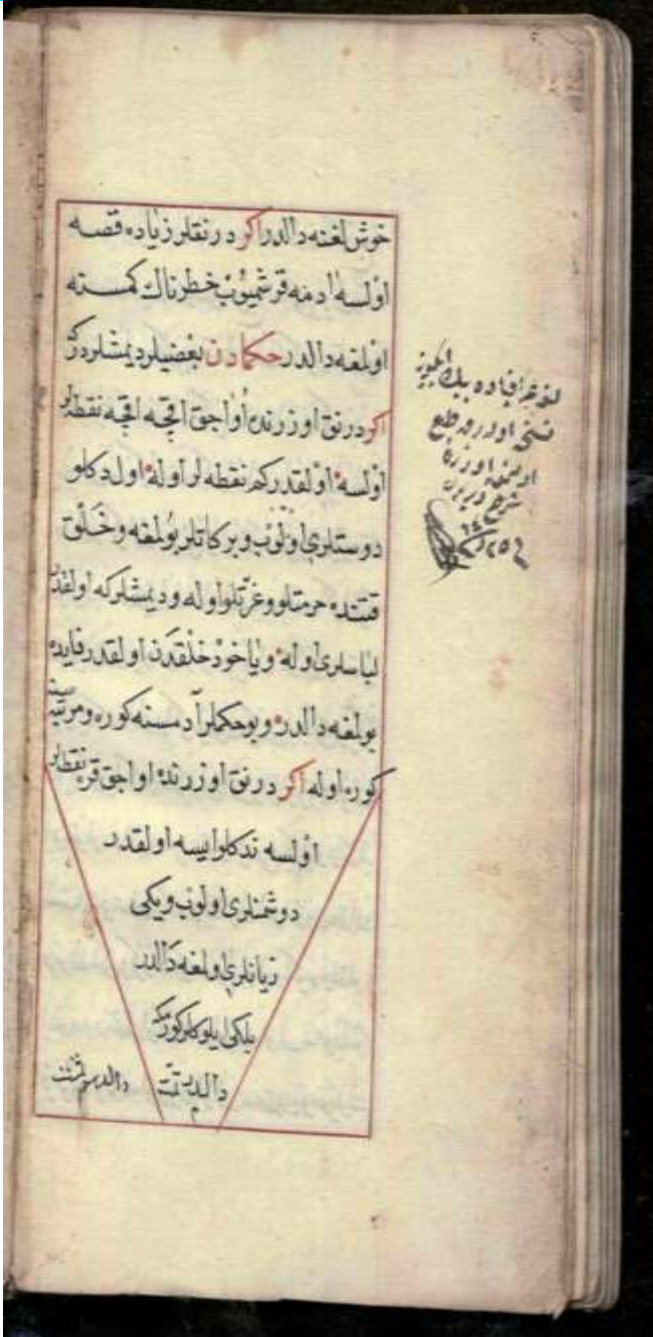 خوش لغنه دالدر اكر درنقلر زیاده قصه
اولسه ادمنه قرشمیوب خطرناك كمسته
اولمغه دالدر حكمادن بعضیلر دیمشلردر
اكر درنق اوزرنده اواجق اقچه اقچه نقطه لر
اولسه اولقدر كم نقطه لر اوله اول دكلو
دوستلری اولوب وبركاتلر بولمغه وخلق
قتنده حرمتلو وعزتلو اوله ودیمشلر كه اولقدر
لباسلری اوله ویاخود خلقدن اولقدر فایده
بولمغه دالدر وبوحكملر آدمسنه كوره ومرتبه سنه
كوره اوله اكر درنق اوزرنده اواجق قره نقطه لر
اولسه ندكلو ایسه اولقدر
دوشمنلری اولوب ویكی
زیانلری اولمغه دالدر
دالدر تمت
دالدر تمت
اوزره
١٢٥٦